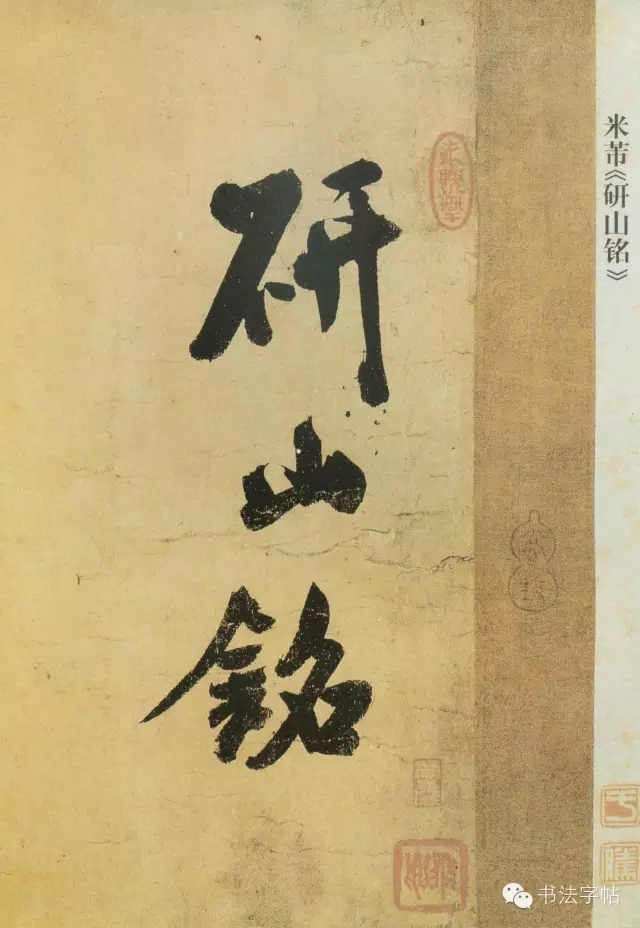 米芾《研山铭》
研山銘
书法字帖